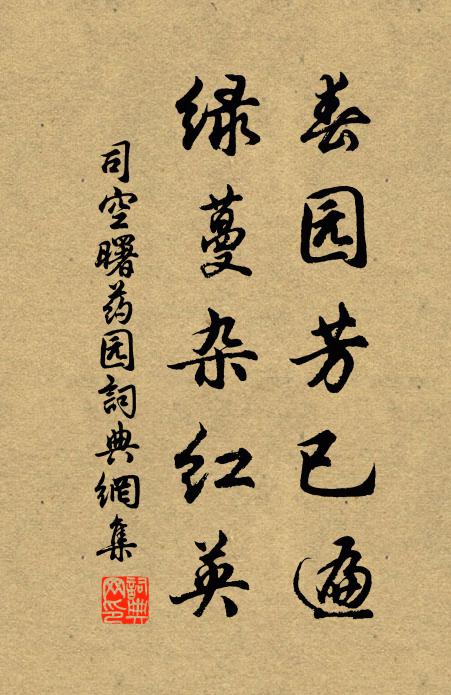 春园芳已遍
绿蔓杂红英
司空曙药园詞典網集
詞典网印